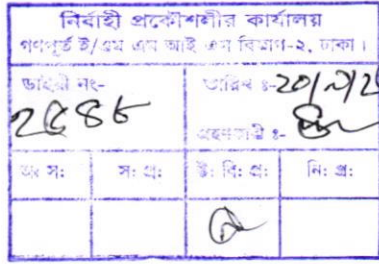 নির্বাহী প্রকৌশলীর কার্যালয়
গণপূর্ত ই/এম এম আই এস বিভাগ-২, ঢাকা।
ডাইরী নং- তারিখ ঃ-
২৫৪৮ গ্রহণকারী ঃ-
স: প্র: উ: বি: প্র: নি: প্র: